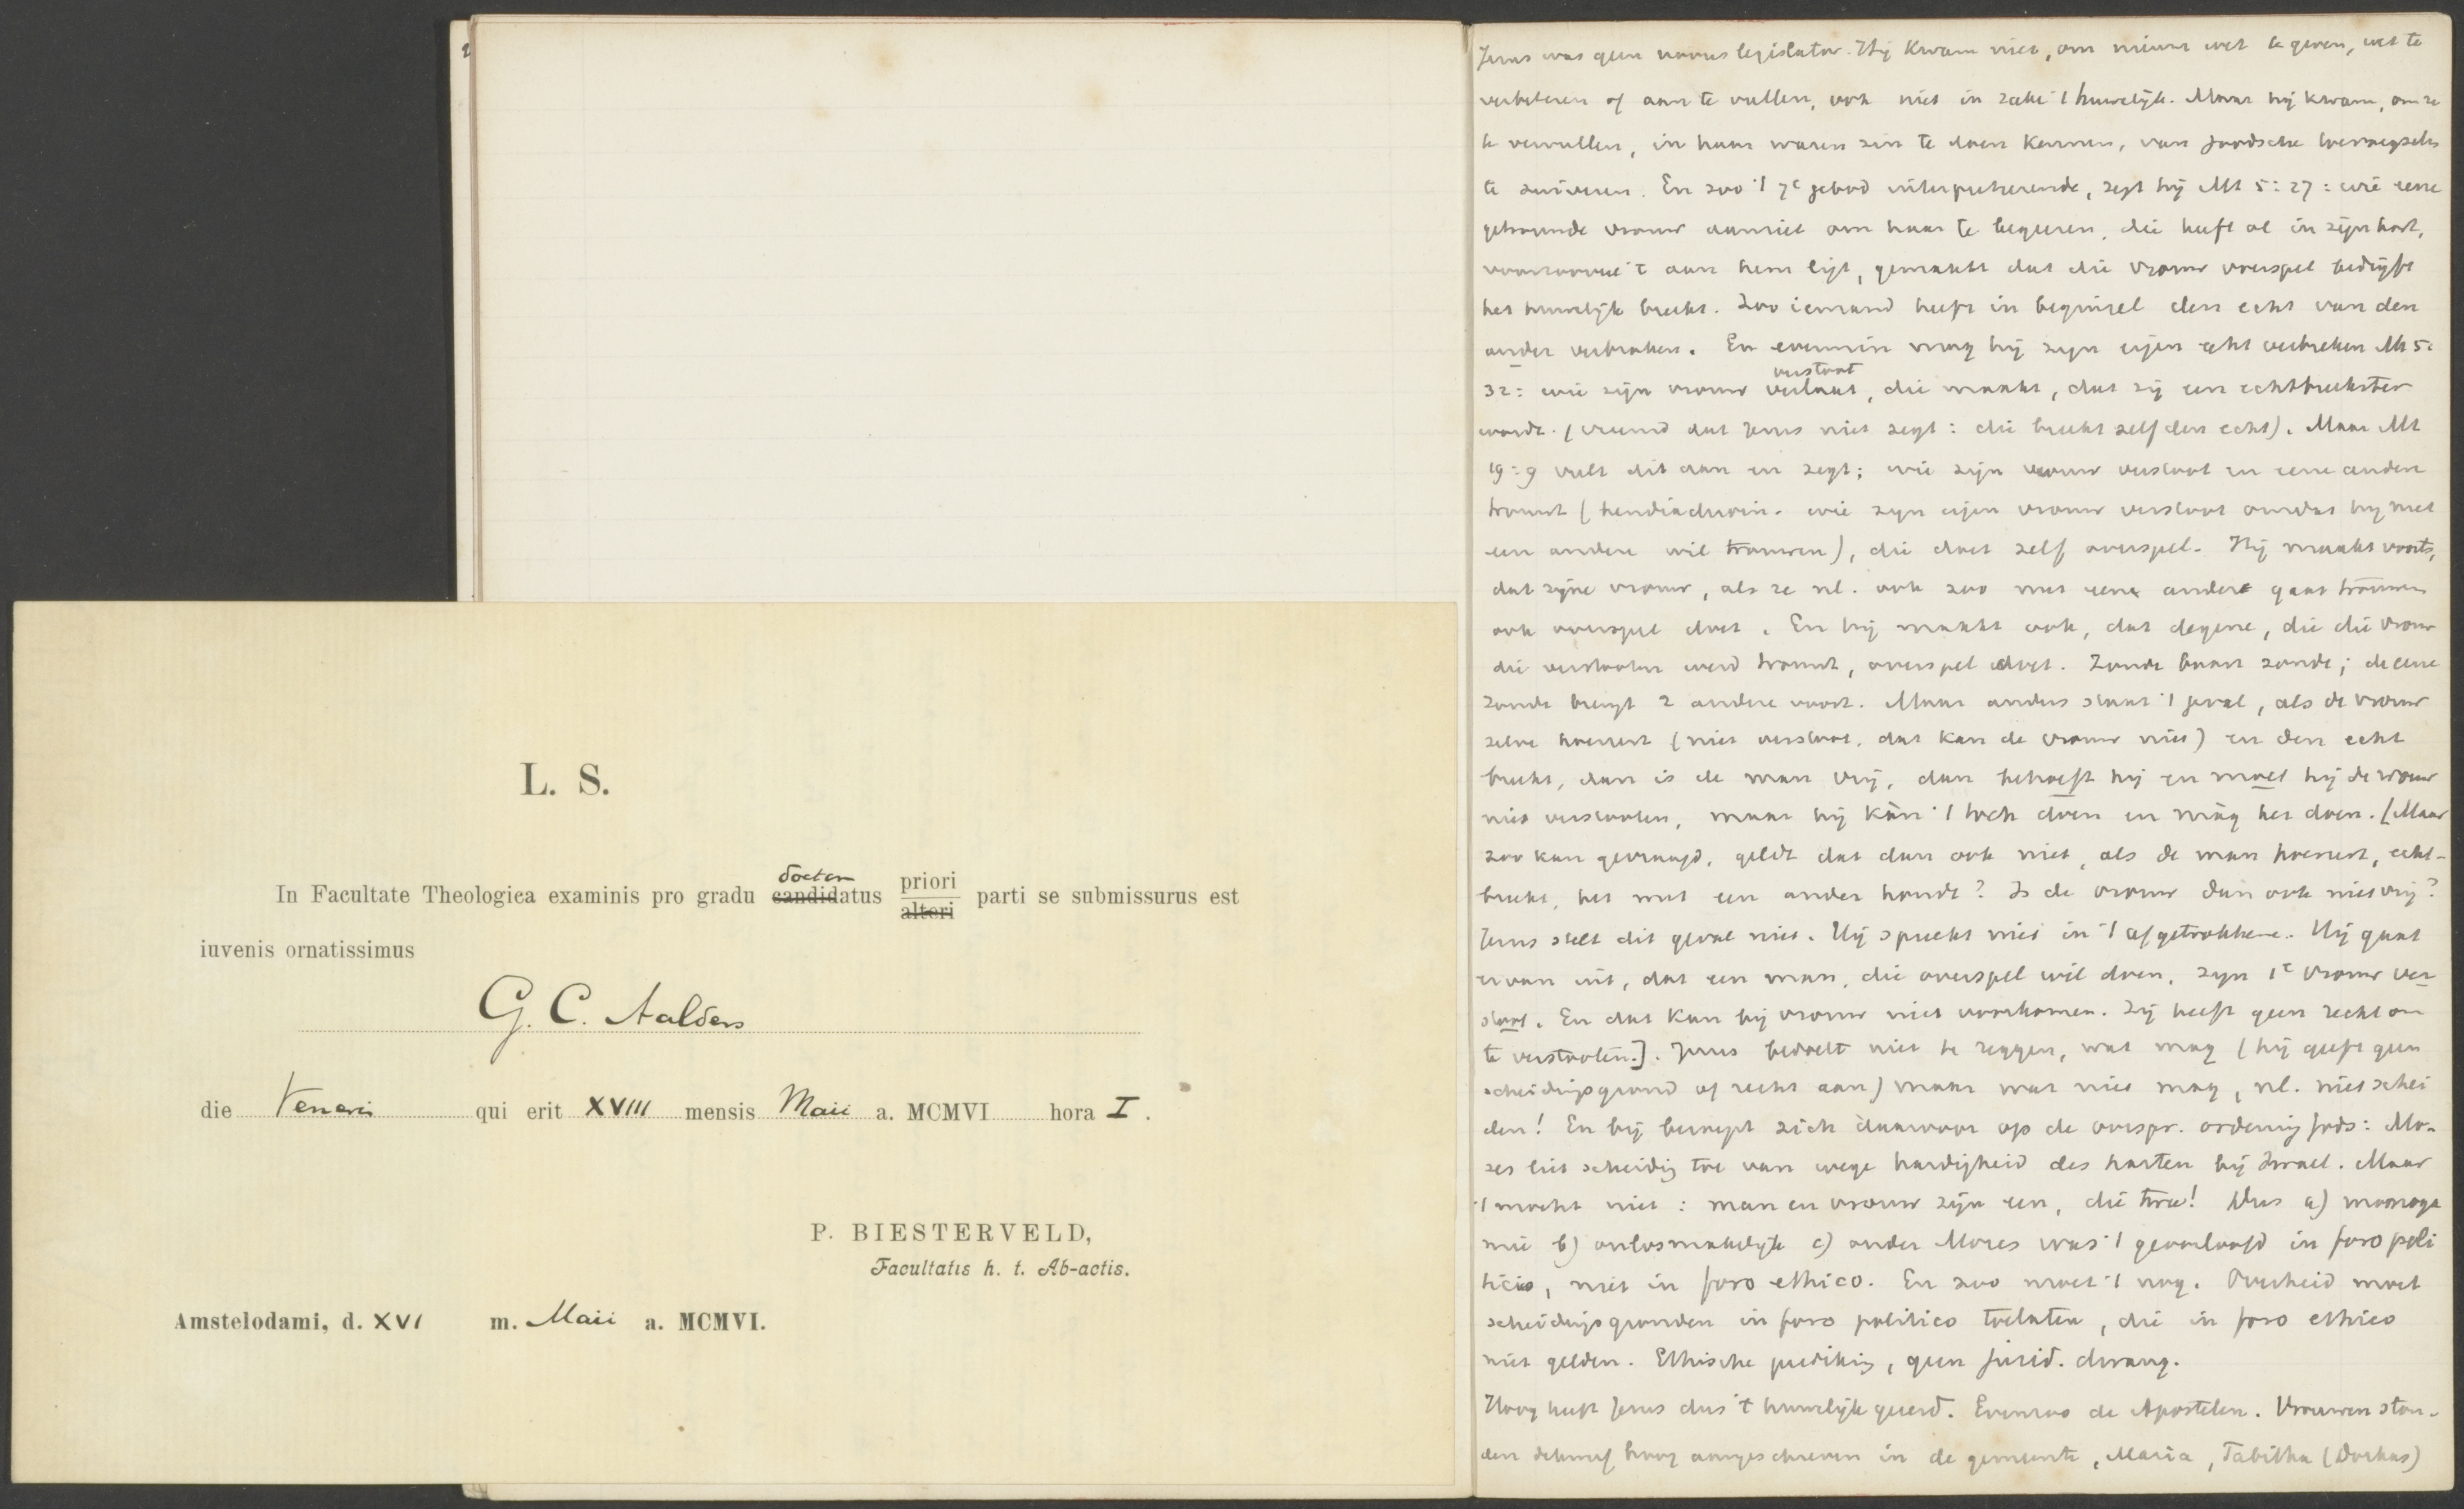 L. S.
In Facultate Theologica examinis pro gradu doctor candidatus priori alteri parti se submissurus est
iuvenis ornatissimus
G. C. Aalders
die Veneris qui erit XVIII mensis Maii a. MCMVI hora I.
P. BIESTERVELD,
Facultatis h. t. Ab-actis.
Amstelodami, d. XVI m. Maii a. MCMVI.
Jezus was geen novus legislator. Hij kwam niet, om nieuwe wet te geven, wet te
verbeteren of aan te vullen, ook niet in zake 't huwelijk. Maar hij kwam, om ze
te vervullen, in haar waren zin te doen kennen, van Joodsche toevoegsels
te zuiveren. En zoo 't 7e gebod interpreteerende, zegt hij Mt 5:27: wie eene
getrouwde vrouw aanziet om haar te begeeren, die heeft al in zijn hart,
voorzoover 't aan hem ligt, gemaakt dat die vrouw overspel bedrijft
het huwelijk breekt. Zoo iemand heeft in beginsel den echt van den
ander verbroken. En evenmin mag hij zijn eigen echt verbreken Mt 5:
32: wie zijn vrouw verlaat verstoot, die maakt, dat zij een echtbreekster
wordt. (vreemd dat Jezus niet zegt: die breekt zelf den echt). Maar Mt
19:9 vult dit aan en zegt: wie zijn vrouw verstoot en eene andere
trouwt (hendiaduoin. wie zijn eigen vrouw verstoot omdat hij met
een andere wil trouwen), die doet zelf overspel. Hij maakt voorts,
dat zijne vrouw, als ze nl. ook zoo met een ander gaat trouwen
ook overspel doet. En hij maakt ook, dat degene, die die vrouw
die verstooten werd trouwt, overspel doet. Zonde baart zonde; de eene
zonde brengt 2 andere voort. Maar anders staat 't geval, als de vrouw
zelve hoereert (niet verstoot, dat kan de vrouw niet) en den echt
breekt, dan is de man vrij, dan behoeft hij en moet hij de vrouw
niet verstooten, maar hij kàn 't toch doen en màg het doen. [Maar
zoo kan gevraagd, geldt dat dan ook niet, als de man hoereert, echt-
breekt, het met een ander houdt? Is de vrouw dan ook niet vrij?
Jezus stelt dit geval niet. Hij spreekt niet in 't afgetrokkene. Hij gaat
ervan uit, dat een man, die overspel wil doen, zijn 1e vrouw ver-
stoot. En dat kan bij vrouw niet voorkomen. Zij heeft geen recht om
te verstooten.]. Jezus bedoelt niet te zeggen, wat mag (hij geeft geen
scheidingsgrond of recht aan) maar wat niet mag, nl. niet schei
den! En hij beroept zich daarvoor op de oorspr. ordening Gods: Mo-
zes liet scheiding toe van wege hardigheid des harten bij Israel. Maar
't mocht niet: man en vrouw zijn een, die twee! Dus a) monoga
mie b) onlosmakelijk c) onder Mozes was 't geoorloofd in foro poli
tico, niet in foro ethico. En zoo moet 't nog. Overheid moet
scheidingsgronden in foro politico toelaten, die in foro ethico
niet gelden. Ethische prediking, geen jurid. dwang.
Hoog heeft Jezus dus 't huwelijk geëerd. Evenzoo de Apostelen. Vrouwen ston-
den hoog aangeschreven in de gemeente, Maria, Tabitha (Dorkas)